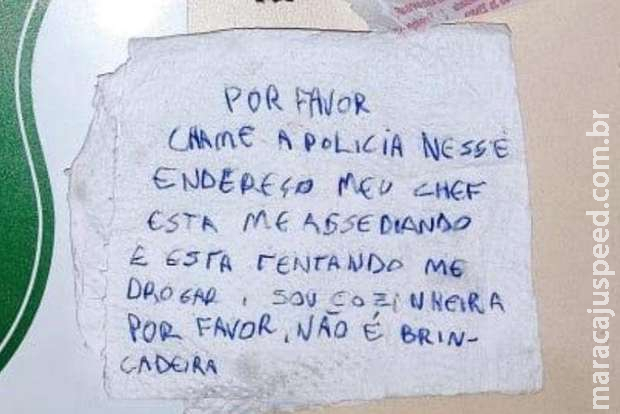 POR FAVOR
CHAME A POLICIA NESSE
ENDEREÇO MEU CHEF
ESTA ME ASSEDIANDO
E ESTA TENTANDO ME
DROGAR, SOU COZINHEIRA
POR FAVOR, NÃO É BRIN-
CADEIRA
maracajuspeed.com.br